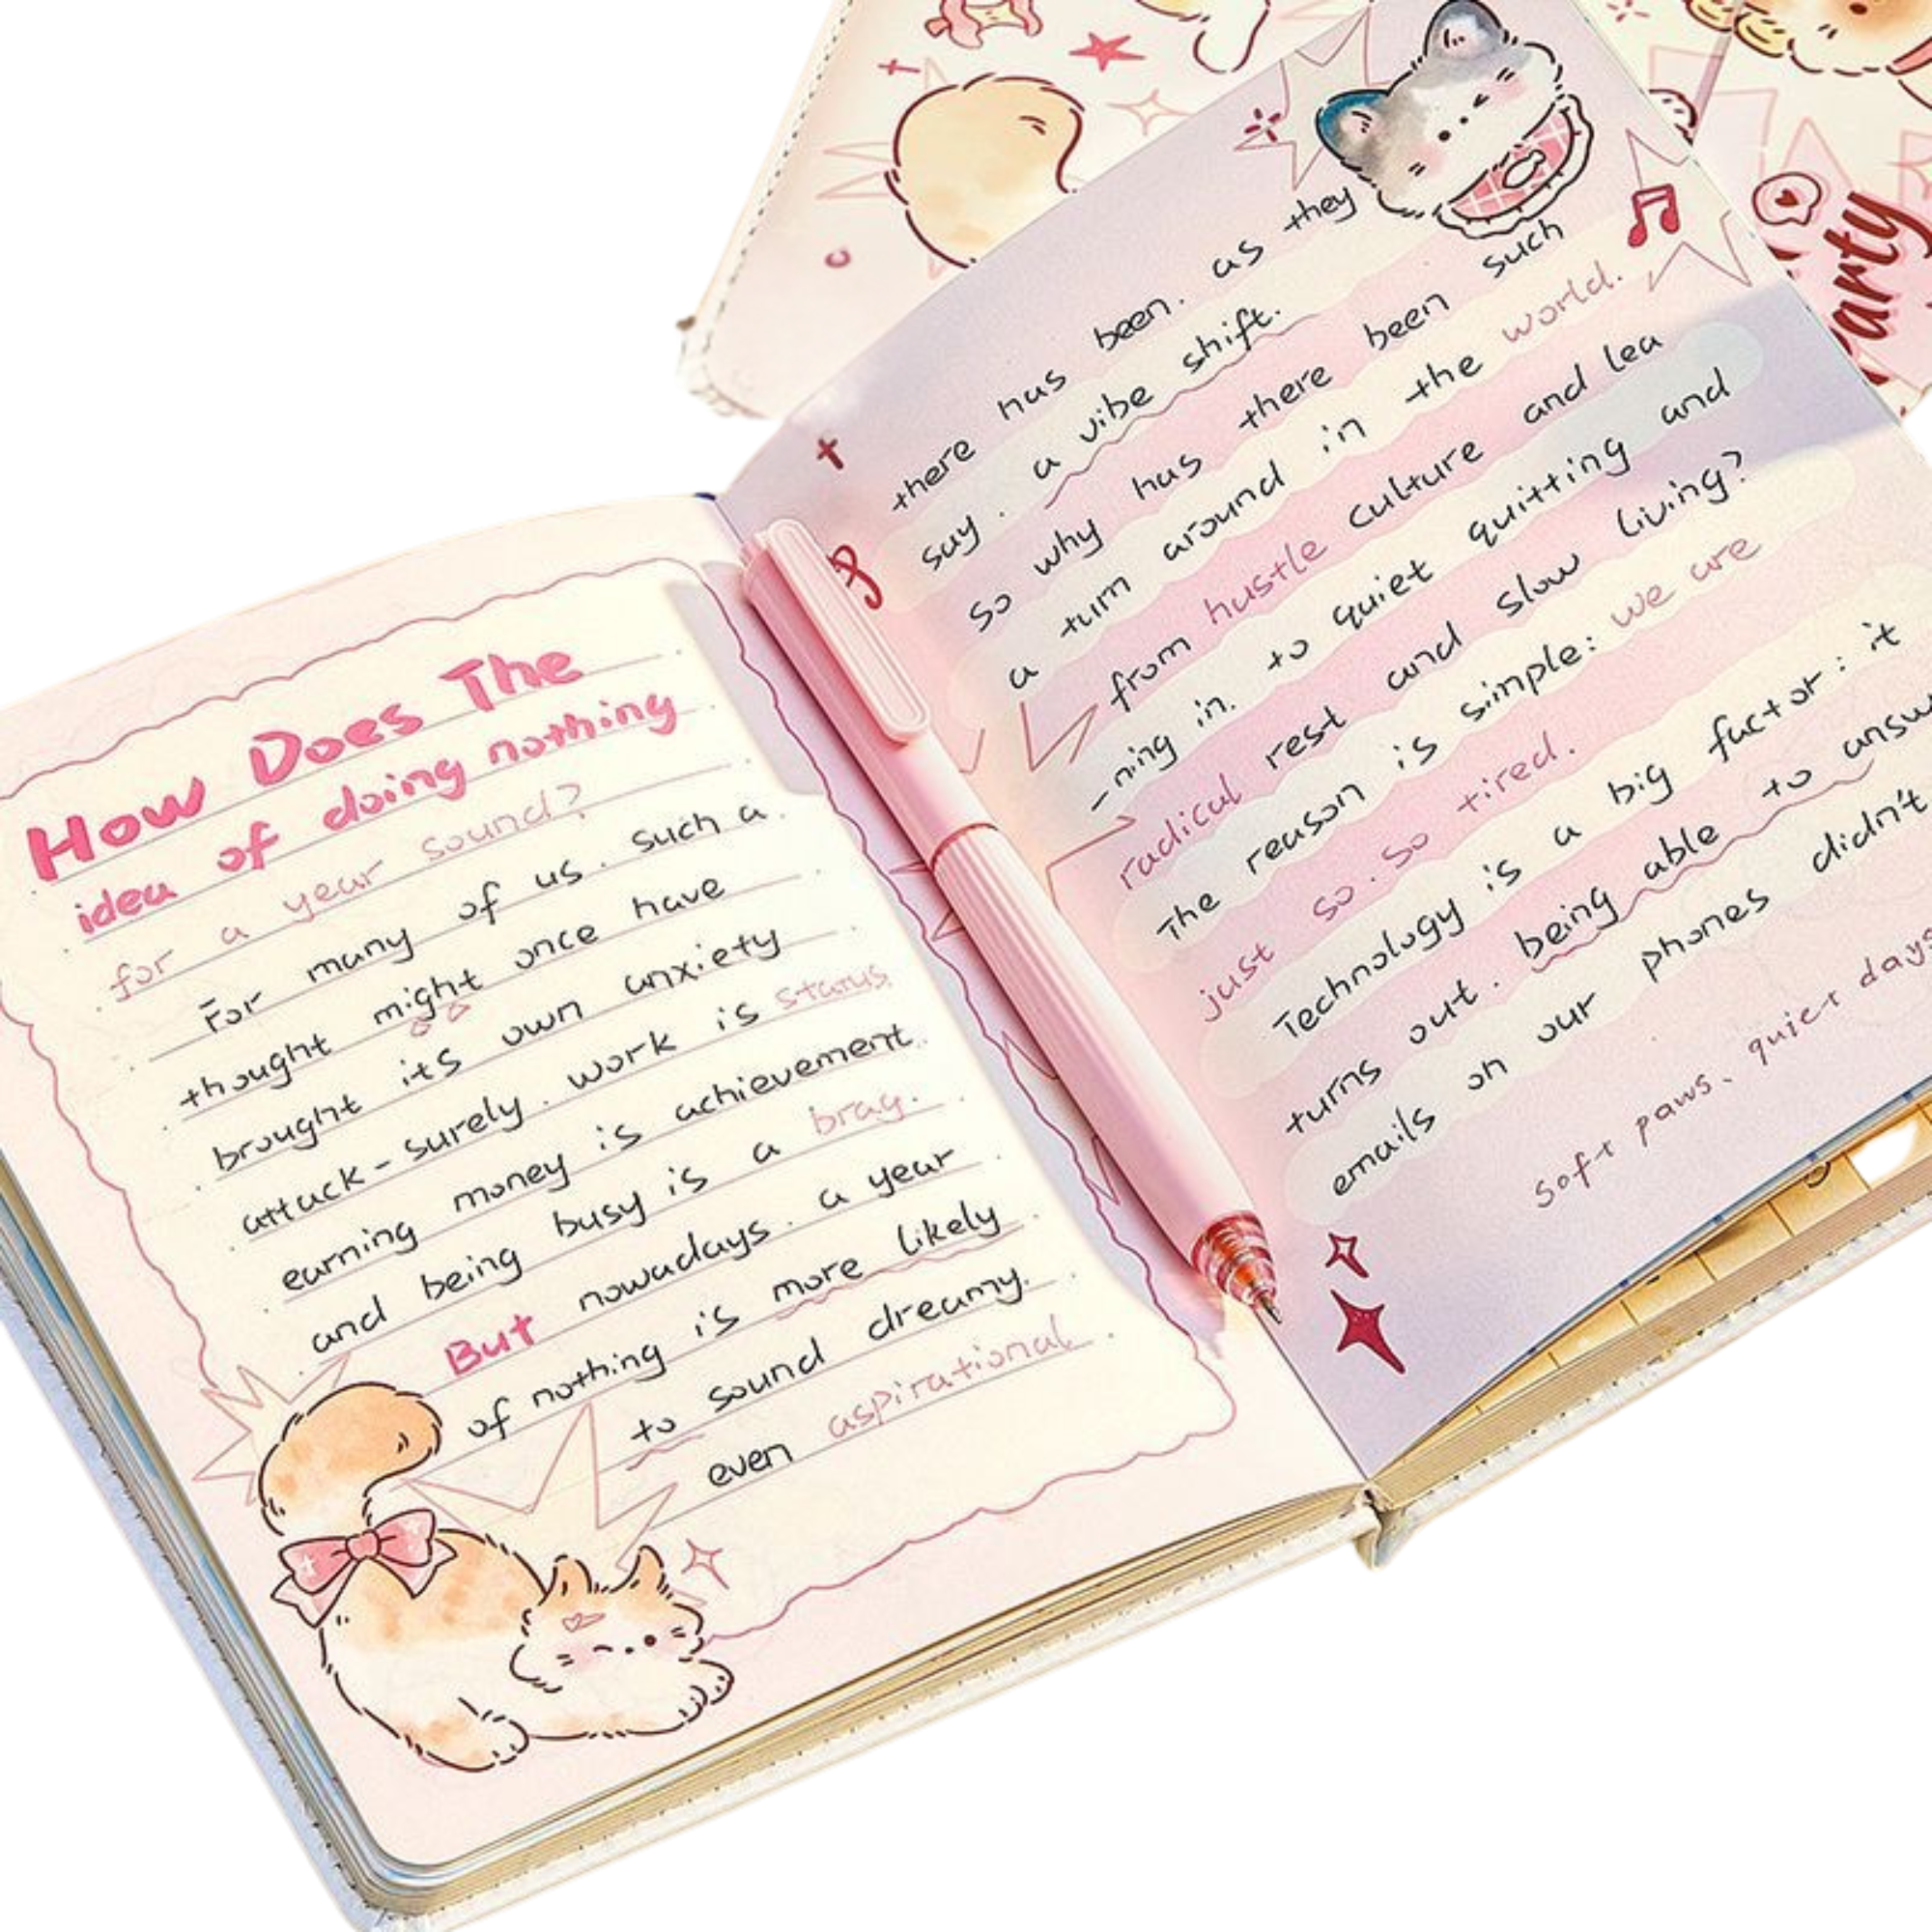 How Does The
idea of doing nothing
for a year sound?
For many of us. such a
thought might once have
brought its own anxiety
attack - surely. work is status.
earning money is achievement.
and being busy is a brag.
But nowadays. a year
of nothing is more likely
to sound dreamy.
even aspirational.
there has been. as they
say. a vibe shift.
so why has there been such
a turn around in the world.
from hustle culture and lea
-ning in. to quiet quitting and
radical rest and slow living?
The reason is simple: we are
just so. so tired.
Technology is a big factor: it
turns out. being able to answ
emails on our phones didn't
soft paws、quiet days
arty